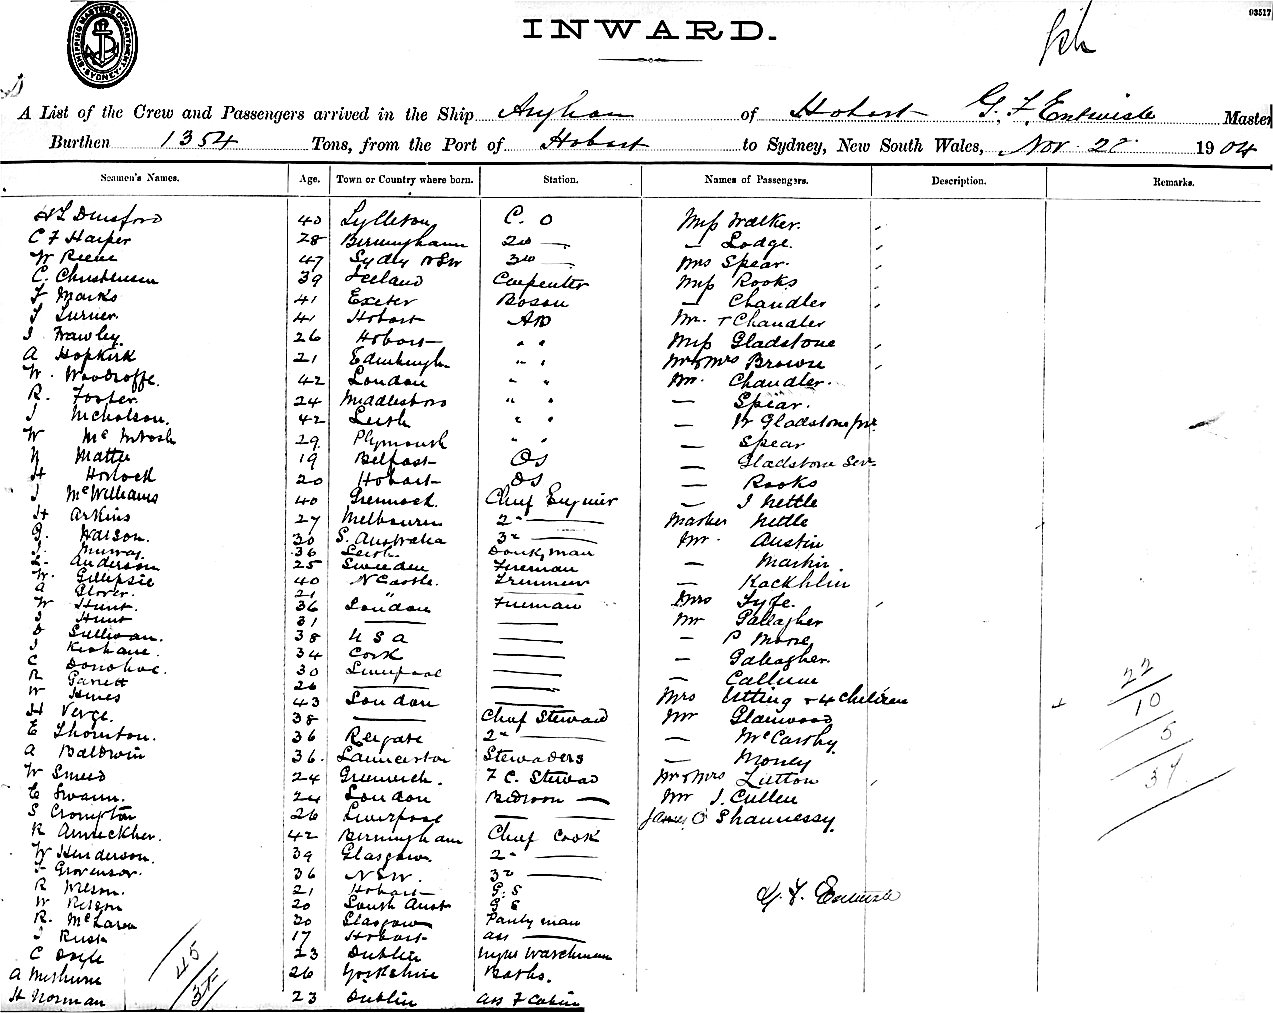 03517
SHIPPING MASTERS DEPARTMENT SYDNEY
INWARD.
A List of the Crew and Passengers arrived in the Ship of Hobart G. F. Entwisle Master
Burthen 1354 Tons, from the Port of Hobart to Sydney, New South Wales, Nov 1904
Seamen's Names. Age. Town or Country where born. Station. Names of Passengers. Description. Remarks.
H L Dunsford 40 Lyttleton C. O Miss Walker.
C F Harper 28 Birmingham 2nd — — Lodge.
W Reeve 47 Sydney NSW 3rd — Mrs Spear.
C. Christensen 39 Iceland Carpenter Miss Rooks
F Marks 41 Exeter Bosun — Chandler
Turner 41 Hobart AB Mr. + Chandler
J Frawley. 26 Hobart " " Miss Gladstone
A Hopkirk 21 Edinburgh " " Mr & Mrs Brown
W. Woodroffe. 42 London " " Mr. Chandler.
R. Foster. 24 Middlesboro " " — Spear.
J Nicholson. 42 Leith " " — W Gladstone jnr
W McIntosh 29 Plymouth " " — Spear
19 Belfast OS — Gladstone Senr
H Horlock 20 Hobart OS — Rooks
J McWilliams 40 Greenock. Chief Engineer — J Nettle
H Arkins 27 Melbourne 2nd — Master Nettle
G. Watson. 30 S. Australia 3rd — Mr. Austin
J. Murray 36 Leith. Donkyman — Martin.
Anderson 25 Sweden Fireman — Kackhlin
W. Gillepsie 40 N Castle. Trimmer Mrs Fyfe.
A Glover. 21 " —
W Hunt. 36 London Fireman Mr Gallagher
Hunt 31 — — — P Moore
D Sullivan. 38 U S A — — Gallagher.
J Keohane. 34 Cork — — Callum
C Donohoe. 30 Liverpool — Mrs Utting + 4 Children
R Garrett 26 — — Mr Glanwood
W Hines 43 London — — McCarthy
H Verge. 38 — Chief Steward — Money
E Thornton. 36 Reigate 2nd — Mr & Mrs Lutton
A Baldwin 36. Launceston Stewardess Mr J. Cullen
W Smeed 24 Greenwich. F C. Steward James O Shaunnessy
C Swann. 24 London Bedroom —
S Crompton 26 Liverpool — —
R 42 Birmingham Chief Cook
W Henderson. 39 Glasgow. 2nd —
Grosvenor. 36 NSW. 3rd —
R Wilson. 21 Hobart G. S G. F. Entwisle
W Nelson 20 South Aust G S
R. McLaren 20 Glasgow Pantryman
Rush 17 Hobart ass —
C Doyle 23 Dublin Night Watchman
A 26 Yorkshire Baths.
H Norman 23 Dublin ass F Cabin
45
37
22
10
5
37